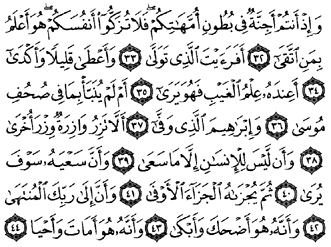 وَإِذْ أَنتُمْ أَجِنَّةٌ فِي بُطُونِ أُمَّهَٰتِكُمْ ۖ فَلَا تُزَكُّوٓا۟ أَنفُسَكُمْ ۖ هُوَ أَعْلَمُ
بِمَنِ ٱتَّقَىٰٓ ٣٢ أَفَرَءَيْتَ ٱلَّذِي تَوَلَّىٰ ٣٣ وَأَعْطَىٰ قَلِيلًا وَأَكْدَىٰٓ
٣٤ أَعِندَهُۥ عِلْمُ ٱلْغَيْبِ فَهُوَ يَرَىٰٓ ٣٥ أَمْ لَمْ يُنَبَّأْ بِمَا فِي صُحُفِ
مُوسَىٰ ٣٦ وَإِبْرَٰهِيمَ ٱلَّذِي وَفَّىٰٓ ٣٧ أَلَّا تَزِرُ وَازِرَةٌ وِزْرَ أُخْرَىٰ
٣٨ وَأَن لَّيْسَ لِلْإِنسَٰنِ إِلَّا مَا سَعَىٰ ٣٩ وَأَنَّ سَعْيَهُۥ سَوْفَ
يُرَىٰ ٤٠ ثُمَّ يُجْزَىٰهُ ٱلْجَزَآءَ ٱلْأَوْفَىٰ ٤١ وَأَنَّ إِلَىٰ رَبِّكَ ٱلْمُنتَهَىٰ
٤٢ وَأَنَّهُۥ هُوَ أَضْحَكَ وَأَبْكَىٰ ٤٣ وَأَنَّهُۥ هُوَ أَمَاتَ وَأَحْيَا ٤٤